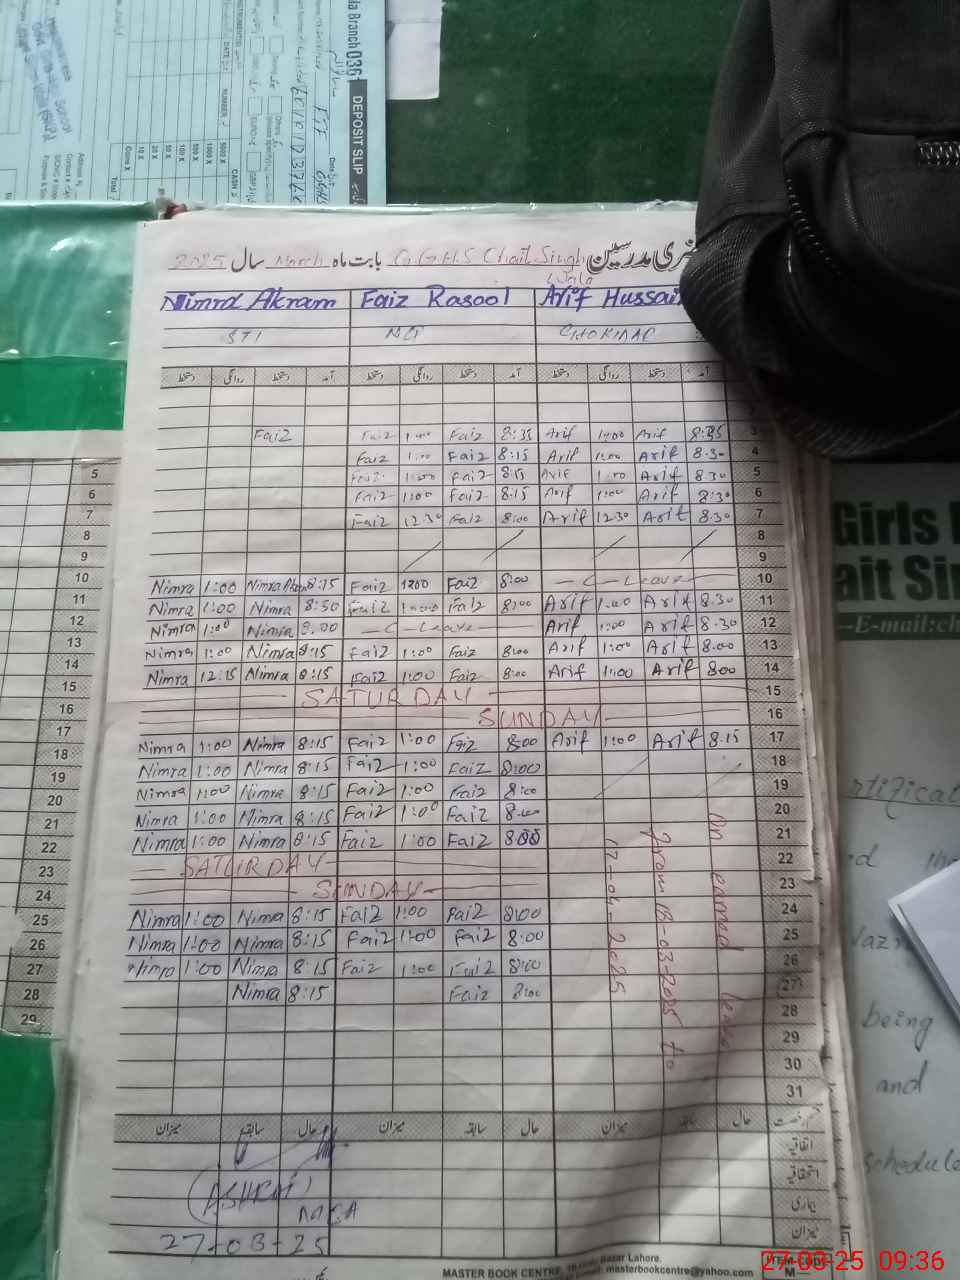 da Branch 0361
DEPOSIT SLIP
NUMBER
CASH
5000 X
1000 X
500 X
100 X
50 X
20 X
10 X
Coins X
Total
حاضری مدرسین G.G.H.S Chait Singh Wala بابت ماہ March سال 2025
Nimra Akram Faiz Rasool Arif Hussain
STI NQ CHOKIDAR
دستخط روانگی دستخط آمد دستخط روانگی دستخط آمد دستخط روانگی دستخط آمد
Faiz Faiz 1:00 Faiz 8:35 Arif 1:00 Arif 8:35 3
Faiz 1:00 Faiz 8:15 Arif 1:00 Arif 8.30 4
Faiz 1:00 Faiz 8:15 Arif 1:00 Arif 8.30 5
Faiz 1:00 Faiz 8:15 Arif 1:00 Arif 8:30 6
Faiz 12:30 Faiz 8:00 Arif 12:30 Arif 8.30 7
8
9
Nimra 1:00 Nimra Akram 8:15 Faiz 1:00 Faiz 8:00 — C - Leave — 10
Nimra 1:00 Nimra 8:50 Faiz 1:00 Faiz 8:00 Arif 1:00 Arif 8.30 11
Nimra 1:00 Nimra 8.00 — C - Leave — Arif 1:00 Arif 8.30 12
Nimra 1:00 Nimra 8:15 Faiz 1:00 Faiz 8:00 Arif 1:00 Arif 8.00 13
Nimra 12:15 Nimra 8:15 Faiz 1:00 Faiz 8:00 Arif 1:00 Arif 8:00 14
SATURDAY 15
SUNDAY 16
Nimra 1:00 Nimra 8:15 Faiz 1:00 Faiz 8:00 Arif 1:00 Arif 8.15 17
Nimra 1:00 Nimra 8:15 Faiz 1:00 Faiz 8:00 18
Nimra 1:00 Nimra 8:15 Faiz 1:00 Faiz 8:00 19
Nimra 1:00 Nimra 8:15 Faiz 1:00 Faiz 8:00 20
Nimra 1:00 Nimra 8:15 Faiz 1:00 Faiz 8:00 21
SATURDAY 22
SUNDAY 23
Nimra 1:00 Nimra 8:15 Faiz 1:00 Faiz 8:00 24
Nimra 1:00 Nimra 8:15 Faiz 1:00 Faiz 8:00 25
Nimra 1:00 Nimra 8:15 Faiz 1:00 Faiz 8:00 26
Nimra 8:15 Faiz 8:00 27
28
29
30
31
On earned leave
from 18-03-2025 to
17-04-2025
میزان سابقہ حال میزان سابقہ حال میزان سابقہ حال
اتفاقیہ
استحقاقیہ
بیماری
میزان
(ASHRAF)
27-03-25
MASTER BOOK CENTRE, Urdu Bazar Lahore.
Email: masterbookcentre@yahoo.com
ITEM CODE
M—
5
6
7
8
9
10
11
12
13
14
15
16
17
18
19
20
21
22
23
24
25
26
27
28
29
Girls
ait Sin
E-mail:ch
being
and
schedule
27-03-25 09:36